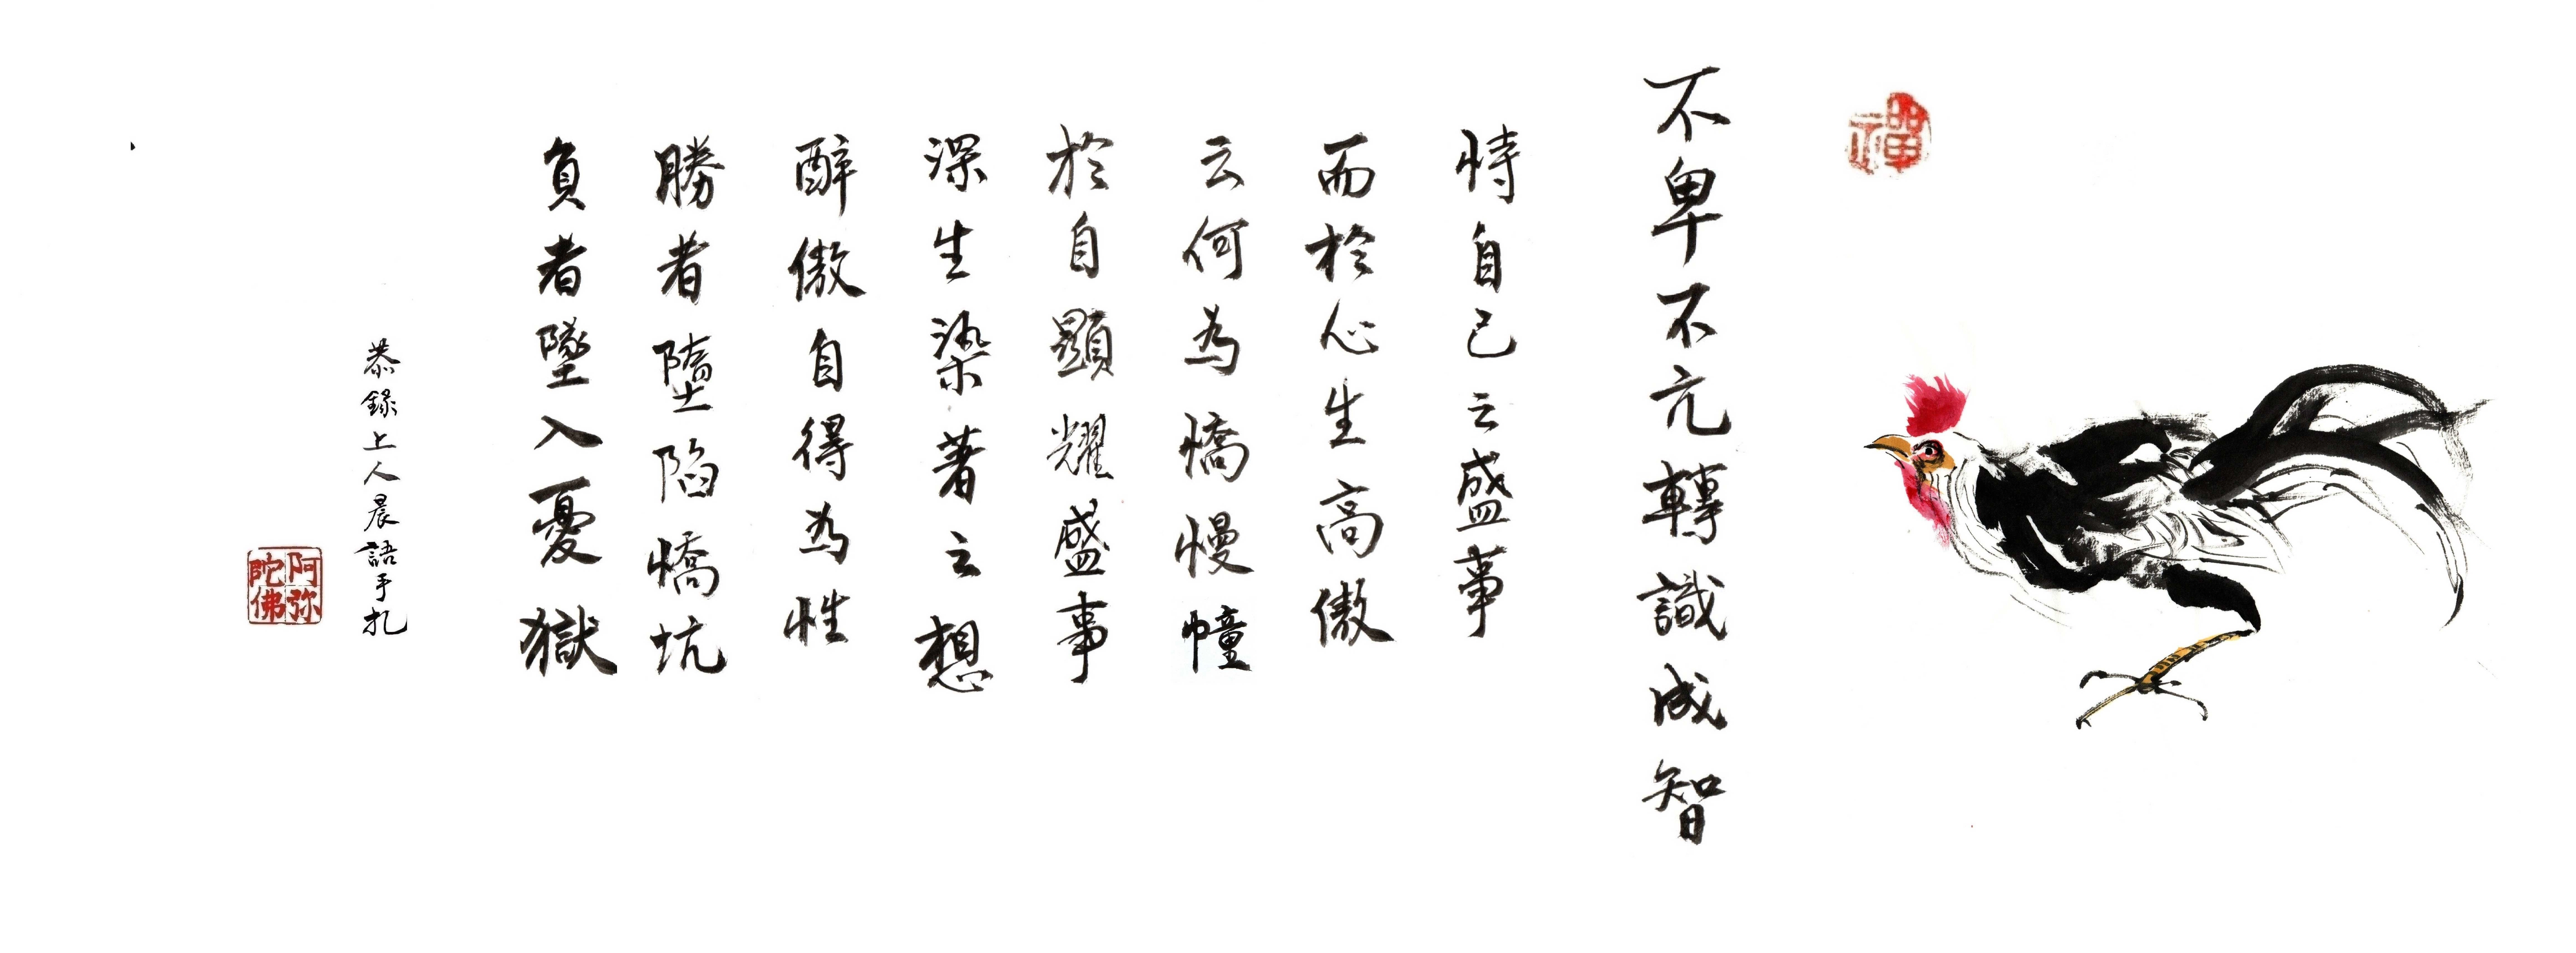 禪
不卑不亢轉識成智
恃自己云盛事
而於心生高傲
云何為憍慢幢
於自顯耀盛事
深生染著云想
醉傲自得為性
勝者墮陷憍坑
負者墜入憂獄
恭錄上人晨語手札
阿弥
陀佛